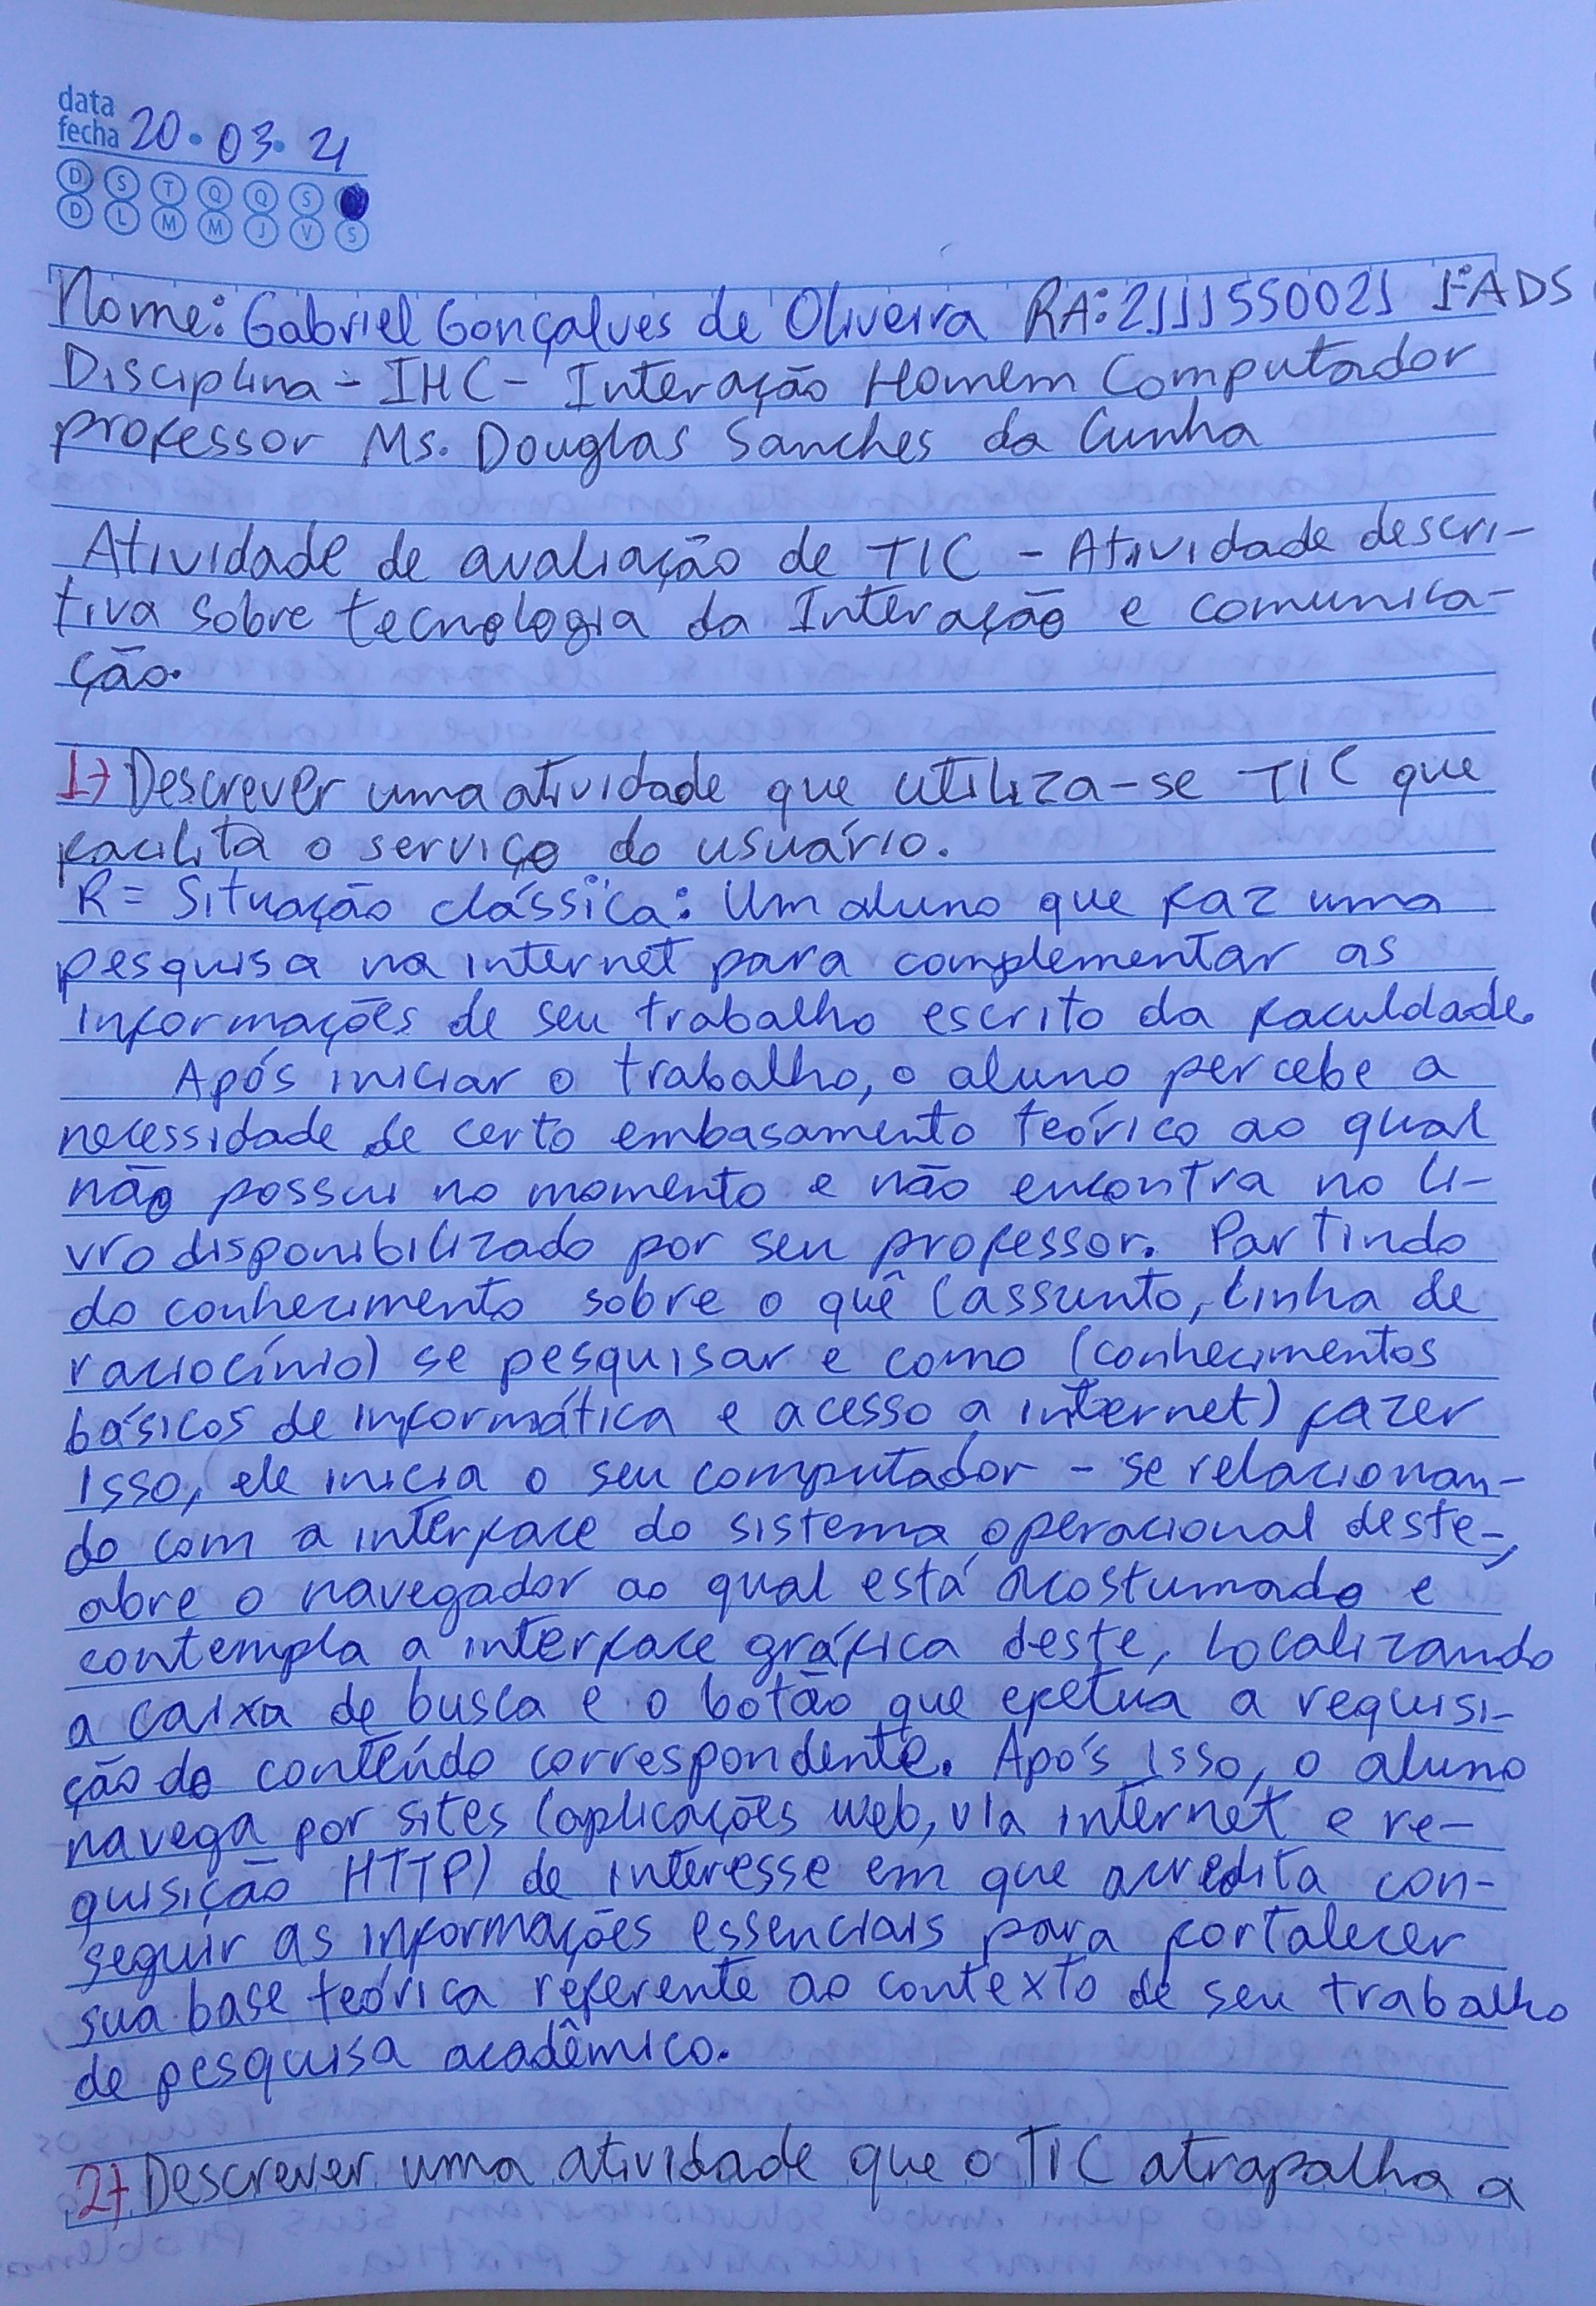 data
fecha 20.03.21
D S T Q Q S
D L M M J V S
Nome: Gabriel Gonçalves de Oliveira RA: 2111550021 1ºADS
Disciplina - IHC - Interação Homem Computador
professor Ms. Douglas Sanches da Cunha
Atividade de avaliação de TIC - Atividade descri-
tiva sobre tecnologia da Interação e comunica-
ção.
1) Descrever uma atividade que utiliza-se TIC que
facilita o serviço do usuário.
R= Situação clássica: Um aluno que faz uma
pesquisa na internet para complementar as
informações de seu trabalho escrito da faculdade.
Após iniciar o trabalho, o aluno percebe a
necessidade de certo embasamento teórico ao qual
não possui no momento e não encontra no li-
vro disponibilizado por seu professor. Partindo
do conhecimento sobre o quê (assunto, linha de
raciocínio) se pesquisar e como (conhecimentos
básicos de informática e acesso a internet) fazer
isso, ele inicia o seu computador - se relacionan-
do com a interface do sistema operacional deste-,
abre o navegador ao qual está acostumado e
contempla a interface gráfica deste, localizando
a caixa de busca e o botão que efetua a requisi-
ção do conteúdo correspondente. Após isso, o aluno
navega por sites (aplicações web, via internet e re-
quisição HTTP) de interesse em que acredita con-
seguir as informações essenciais para fortalecer
sua base teórica referente ao contexto de seu trabalho
de pesquisa acadêmico.
2) Descrever uma atividade que o TIC atrapalha a